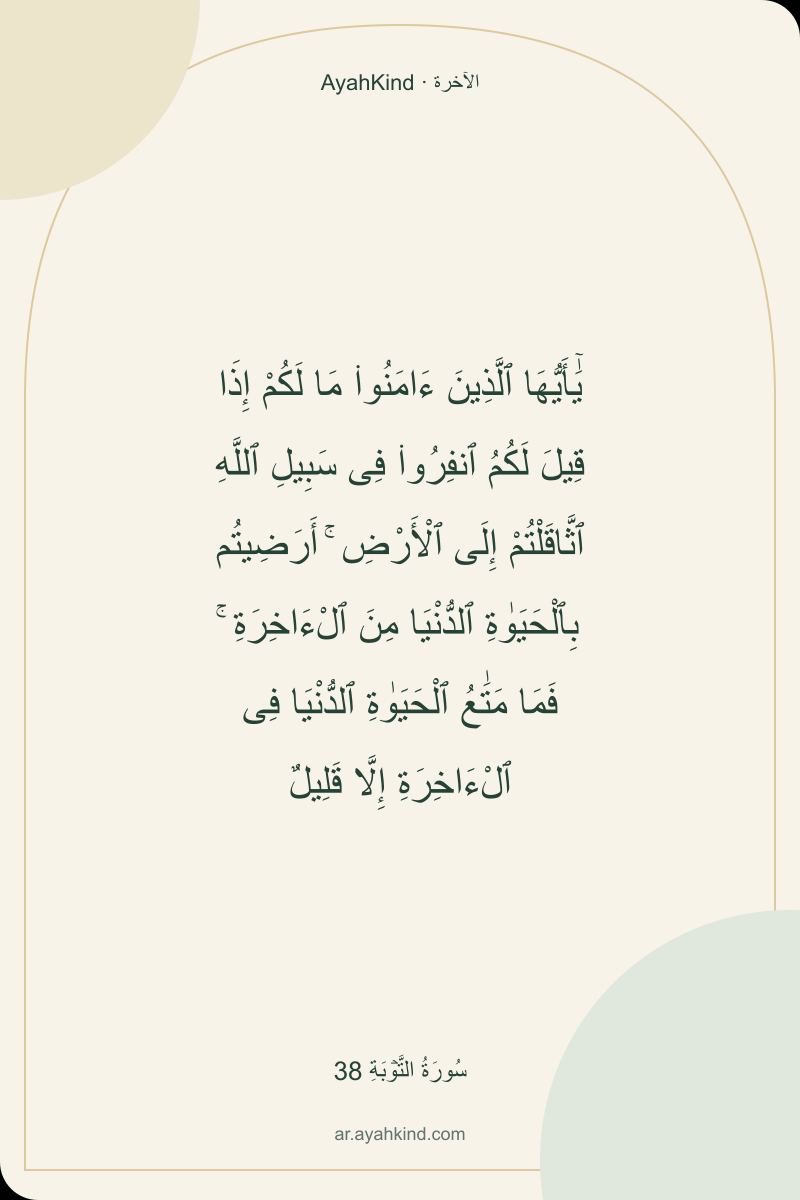 AyahKind · الآخرة
يَٰٓأَيُّهَا ٱلَّذِينَ ءَامَنُوا۟ مَا لَكُمْ إِذَا
قِيلَ لَكُمُ ٱنفِرُوا۟ فِى سَبِيلِ ٱللَّهِ
ٱثَّاقَلْتُمْ إِلَى ٱلْأَرْضِ ۚ أَرَضِيتُم
بِٱلْحَيَوٰةِ ٱلدُّنْيَا مِنَ ٱلْءَاخِرَةِ ۚ
فَمَا مَتَٰعُ ٱلْحَيَوٰةِ ٱلدُّنْيَا فِى
ٱلْءَاخِرَةِ إِلَّا قَلِيلٌ
سُورَةُ التَّوۡبَةِ 38
ar.ayahkind.com